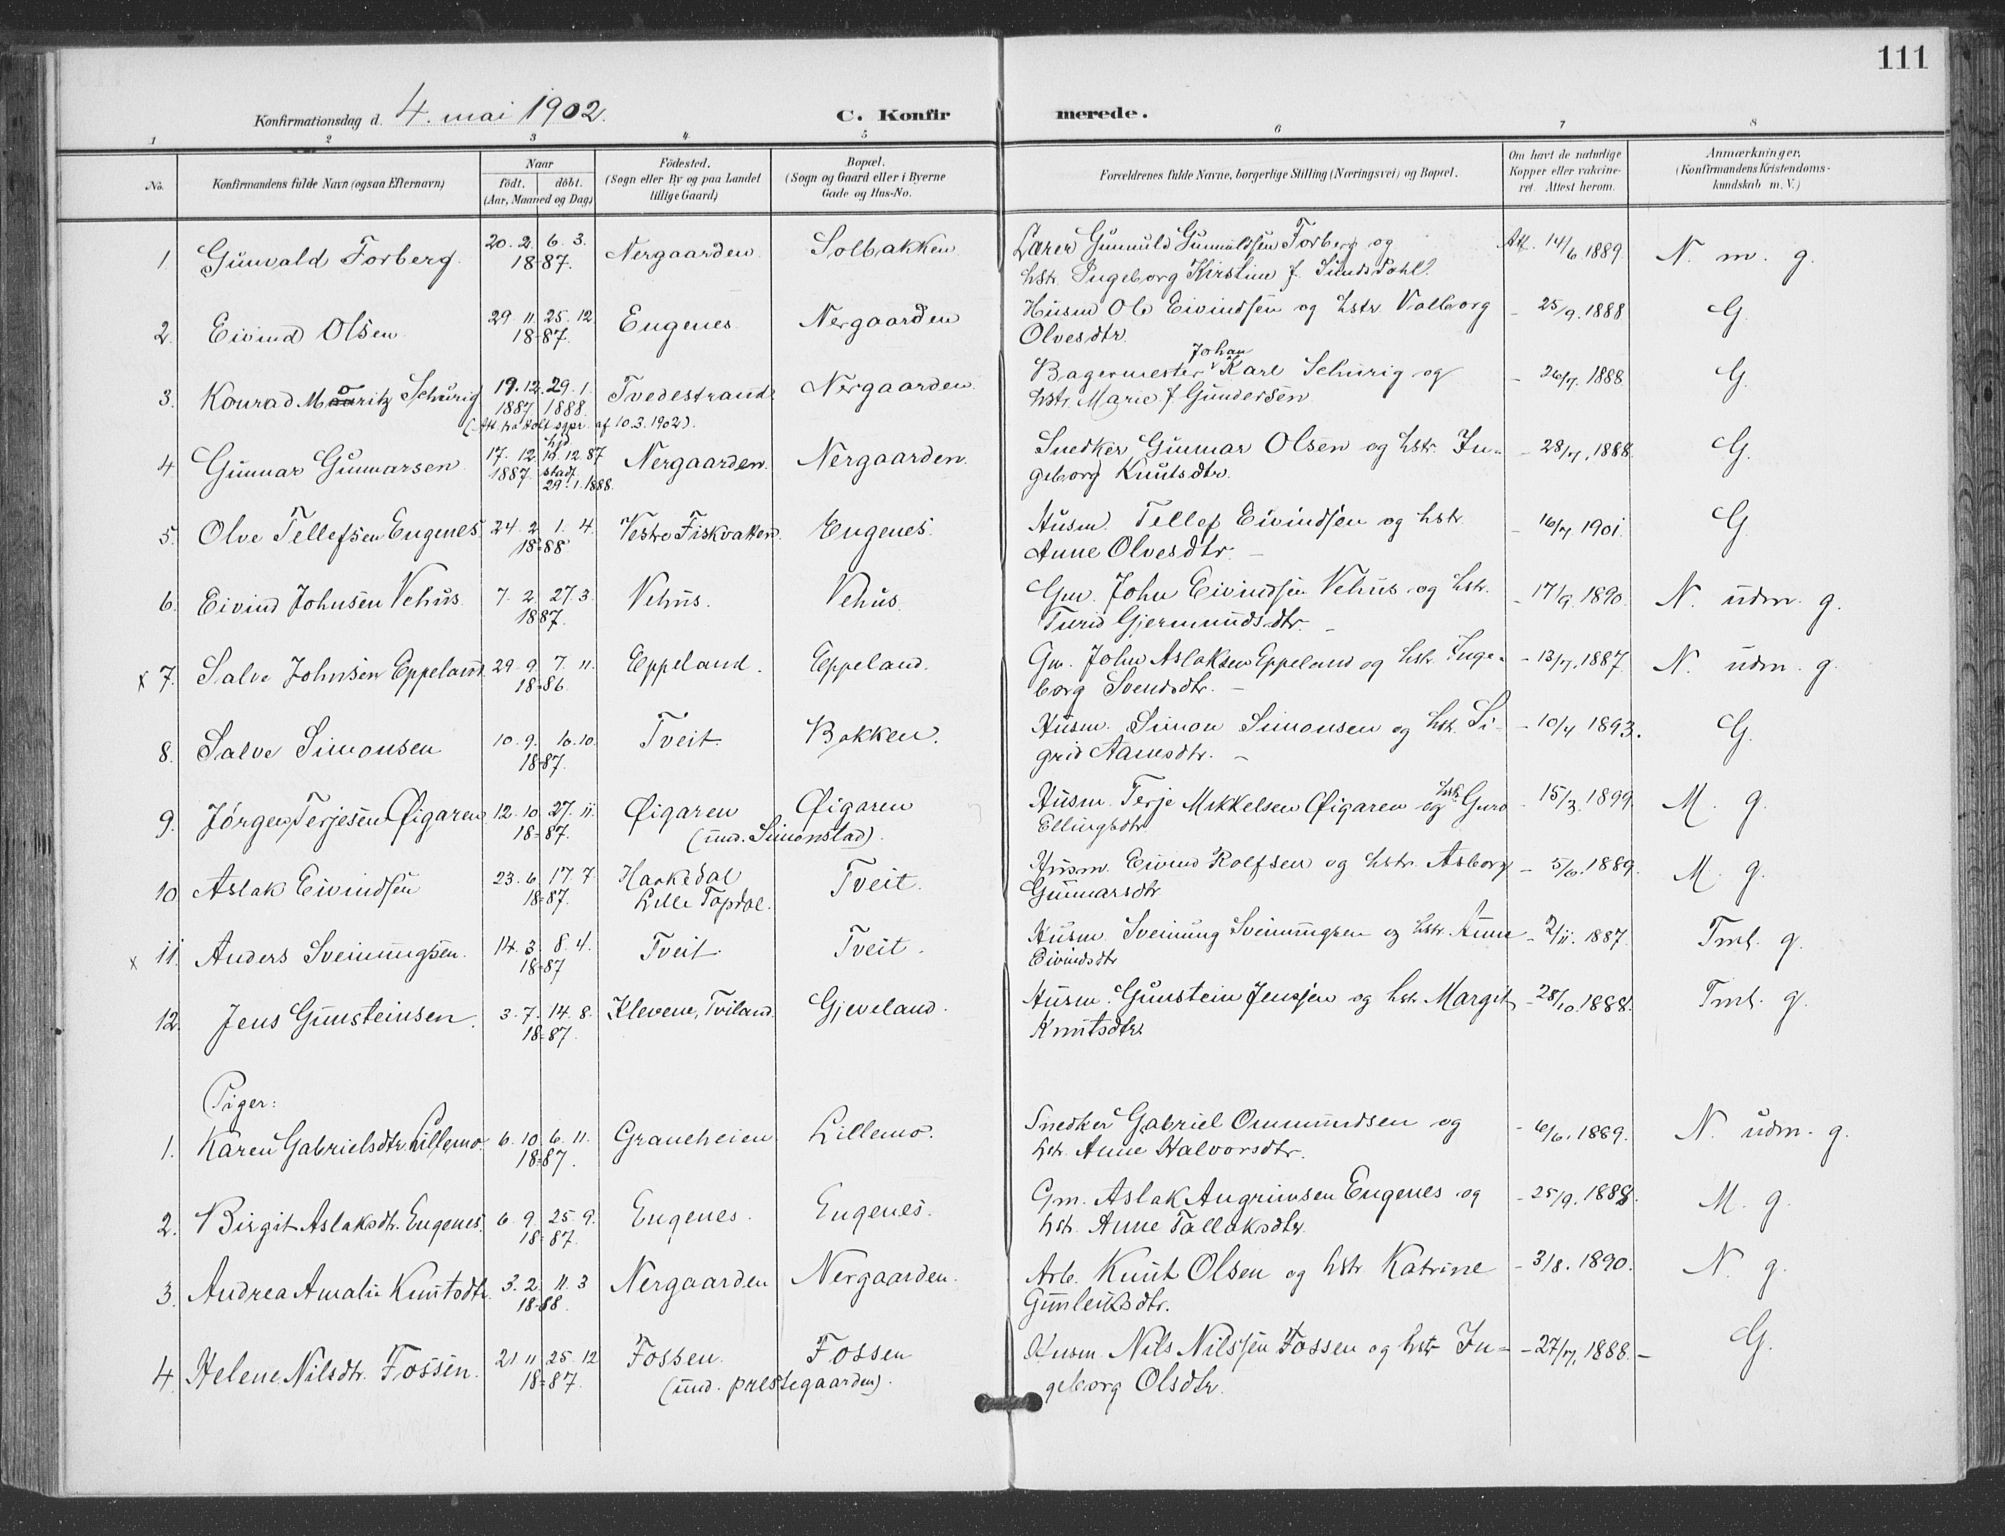 111
Konfirmationsdag d. 4. mai 1902.
C. Konfirmerede.
1 2 3 4 5 6 7 8
No.
Konfirmandens fulde Navn (ogsaa Efternavn)
Naar
födt. döbt.
(Aar, Maaned og Dag)
Födested.
(Sogn eller By og paa Landet
tillige Gaard)
Bopæl.
(Sogn og Gaard eller i Byerne
Gade og Hus-No.
Forældrenes fulde Navne, borgerlige Stilling (Næringsvei) og Bopæl.
Om havt de naturlige
Kopper eller vakcine-
ret. Attest herom.
Anmærkninger,
(Konfirmandens Kristendoms-
kundskab m. V.)
1. Gunvald Forberg. 20. 2. 6. 3. 1887. Nergaarden Solbakken Lærer Gunnuld Gunnuldsen Forberg og Att. 14/6 1889. N. m. g.
hstr. Ingeborg Kirstine f. Sundsdahl.
2. Eivind Olsen. 29. 11. 25. 12 1887. Eugenes. Nergaarden Husm Ole Eivindsen og hstr Valborg - 25/9. 1888 G.
Olvesdtr.
3. Konrad Mooritz Schurig 19. 12. 29. 1. 1887 1888. Tvedestrand Nergaarden Bagermester Johan Karl Schurig og - 26/7. 1888 G.
hstr. Marie f. Gundersen
(Att. fra Holt sgpr. af 10. 3. 1902).
4. Gunnar Gunnarsen 17. 12. 1887. hjd. 18. 12 87 stadf. 29. 1. 1888. Nergaarden. Nergaarden. Snedker Gunnar Olsen og hstr. In- - 28/7. 1888. G.
geborg Knutsdtr.
5. Olve Tellefsen Eugenes. 24. 2 1. 4. 1888 Vestre Fiskvatten. Eugenes. Husm. Tellef Eivindsen og hstr. - 16/7 1901. G.
Anne Olvesdtr. -
6. Eivind Johnsen Vehus. 7. 2. 27. 3. 1887. Vehus. Vehus. Gm. John Eivindsen Vehus og hstr. - 17/9. 1890. N. udm. g.
Turid Gjermundsdtr. -
x 7. Salve Johnsen Eppeland. 29. 9. 7. 11. 1886 Eppeland. Eppeland. Gm. John Aslaksen Eppeland og hstr. Inge- - 13/7. 1887 N. udm. g.
borg Svendsdtr. -
8. Salve Simonsen 10. 9. 16. 10. 1887. Tveit. Bakken. Husm. Simon Simonsen og hstr. Si- - 10/4 1893. G.
grid Aanesdtr. -
9. Jørgen Terjesen Øigaren 12. 10. 27. 11. 1887. Øigaren Øigaren Husm. Terje Mikkelsen Øigaren og hstr. Guro - 15/3. 1899. M. g.
(und. Simonstad). Ellingsdtr
10. Aslak Eivindsen 23. 6. 17. 7 1887. Harkedal Tveit. Husm. Eivind Rolfsen og hstr. Asborg - 5/6. 1889. M. g.
Lille Topdal. Gunnarsdtr
x 11. Anders Sveinungsen. 14. 3. 8. 4. 1887 Tveit. Tveit. Husm. Sveinung Sveinungsen og hstr. Anne - 2/11. 1887. Tml. g.
Eivindsdtr
12. Jens Gunsteinsen. 3. 7. 14. 8. 1887. Klevene, Tviland. Gjeveland. Husm. Gunstein Jensen og hstr. Margit - 28/10. 1888. Tml. g.
Knutsdtr.
Piger:
1. Karen Gabrielsdtr. Lillemo. 6. 10. 6. 11. 1887. Graneheien Lillemo. Snedker Gabriel Ommundsen og - 6/6. 1889. N. udm. g.
hstr. Anne Halvorsdtr.
2. Birgit Aslaksdtr. Eugenes. 6. 9. 25. 9. 1887. Eugenes. Eugenes. Gm. Aslak Angrimsen Eugenes og - 25/9. 1888. M. g.
hstr. Anne Tallaksdtr.
3. Andrea Amalie Knutsdtr. 3. 2. 11. 3 1888. Nergaarden Nergaarden. Arb. Knut Olsen og hstr Katrine - 3/8. 1890. N. g.
Gunleiksdtr.
4. Helene Nilsdtr. Fossen. 21 11 25. 12 1887. Fossen. Fossen Husm. Nils Nilssen Fossen og hstr In- - 27/7. 1888. - G.
(und. prestegaarden). geborg Olsdtr.